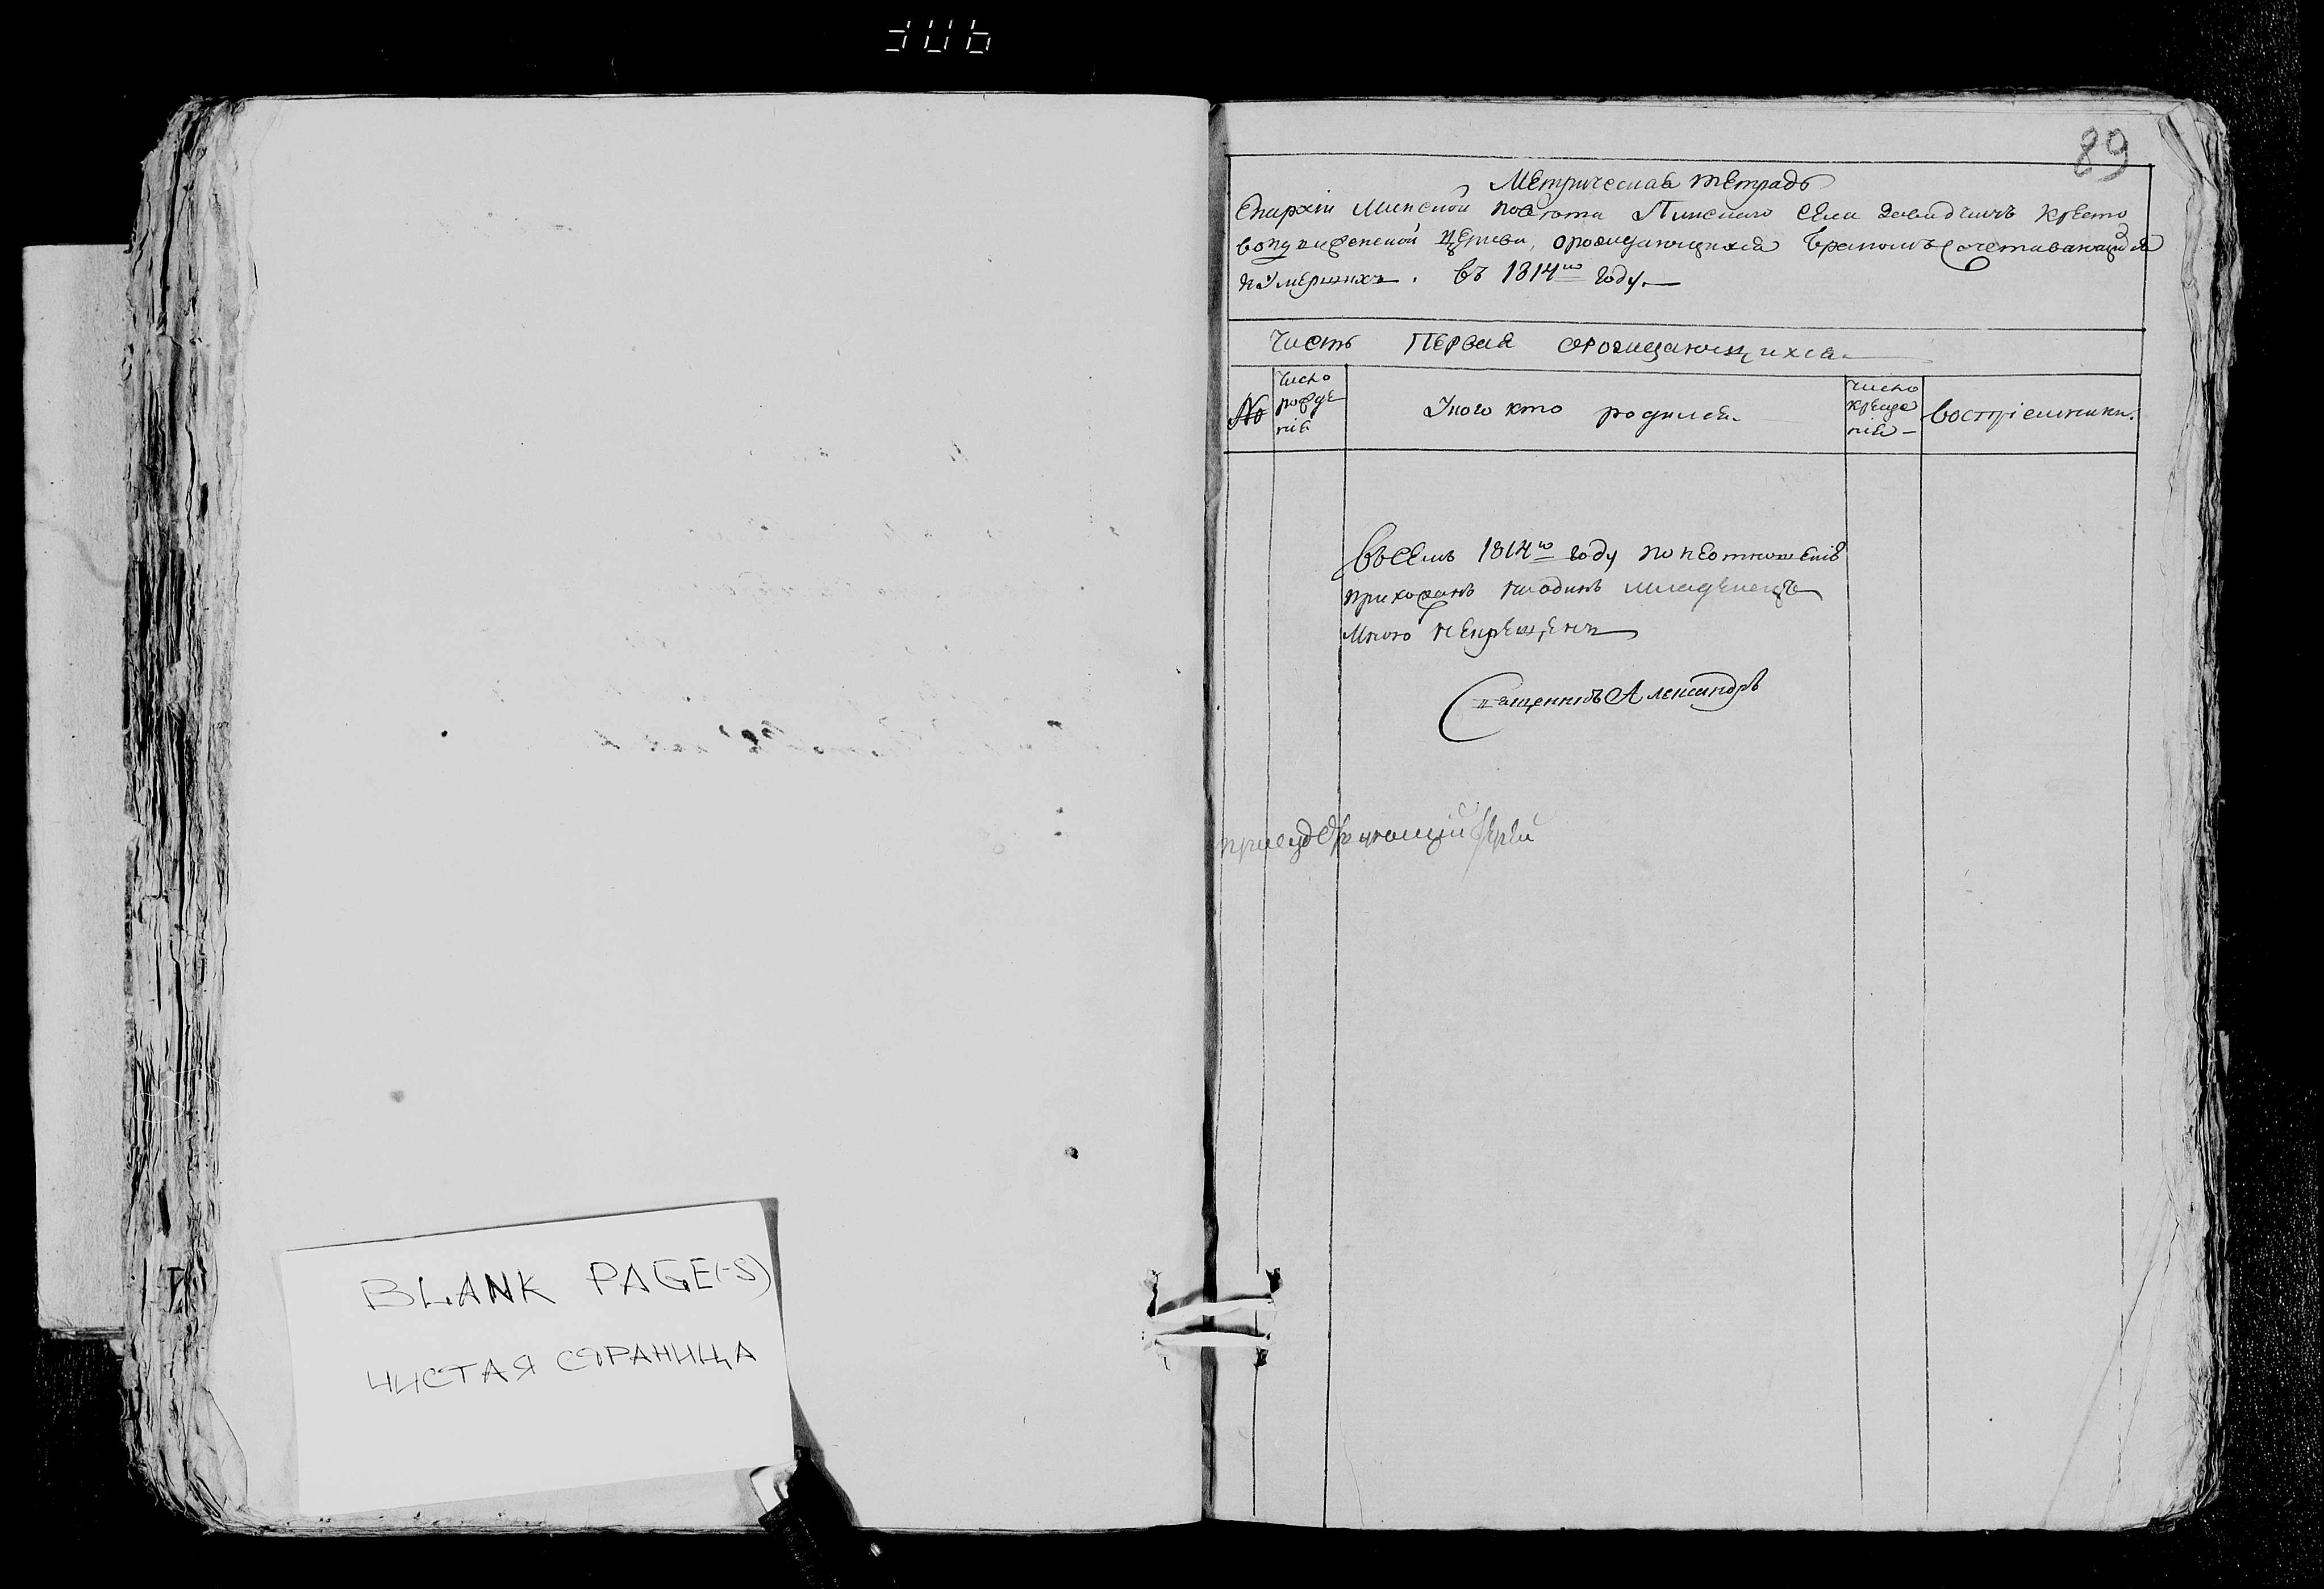 89
Метрическая тетрадь
Епархіи Минской повѣта Пинскаго села Давидчичъ Кресто
воздвиженской Церкви, ораждающихся бракомъ сочетавающихся
и умершихъ. въ 1814го году.
Часть Первая ораждающихся
№
Число рожденія
У кого кто родился
число крещенія
восприемники.
Въ семъ 1814го году по неотношенію
прихожанъ ниодинъ младенецъ
мною некрещенъ
Священникъ Александръ
BLANK PAGE(-S)
ЧИСТАЯ СТРАНИЦА